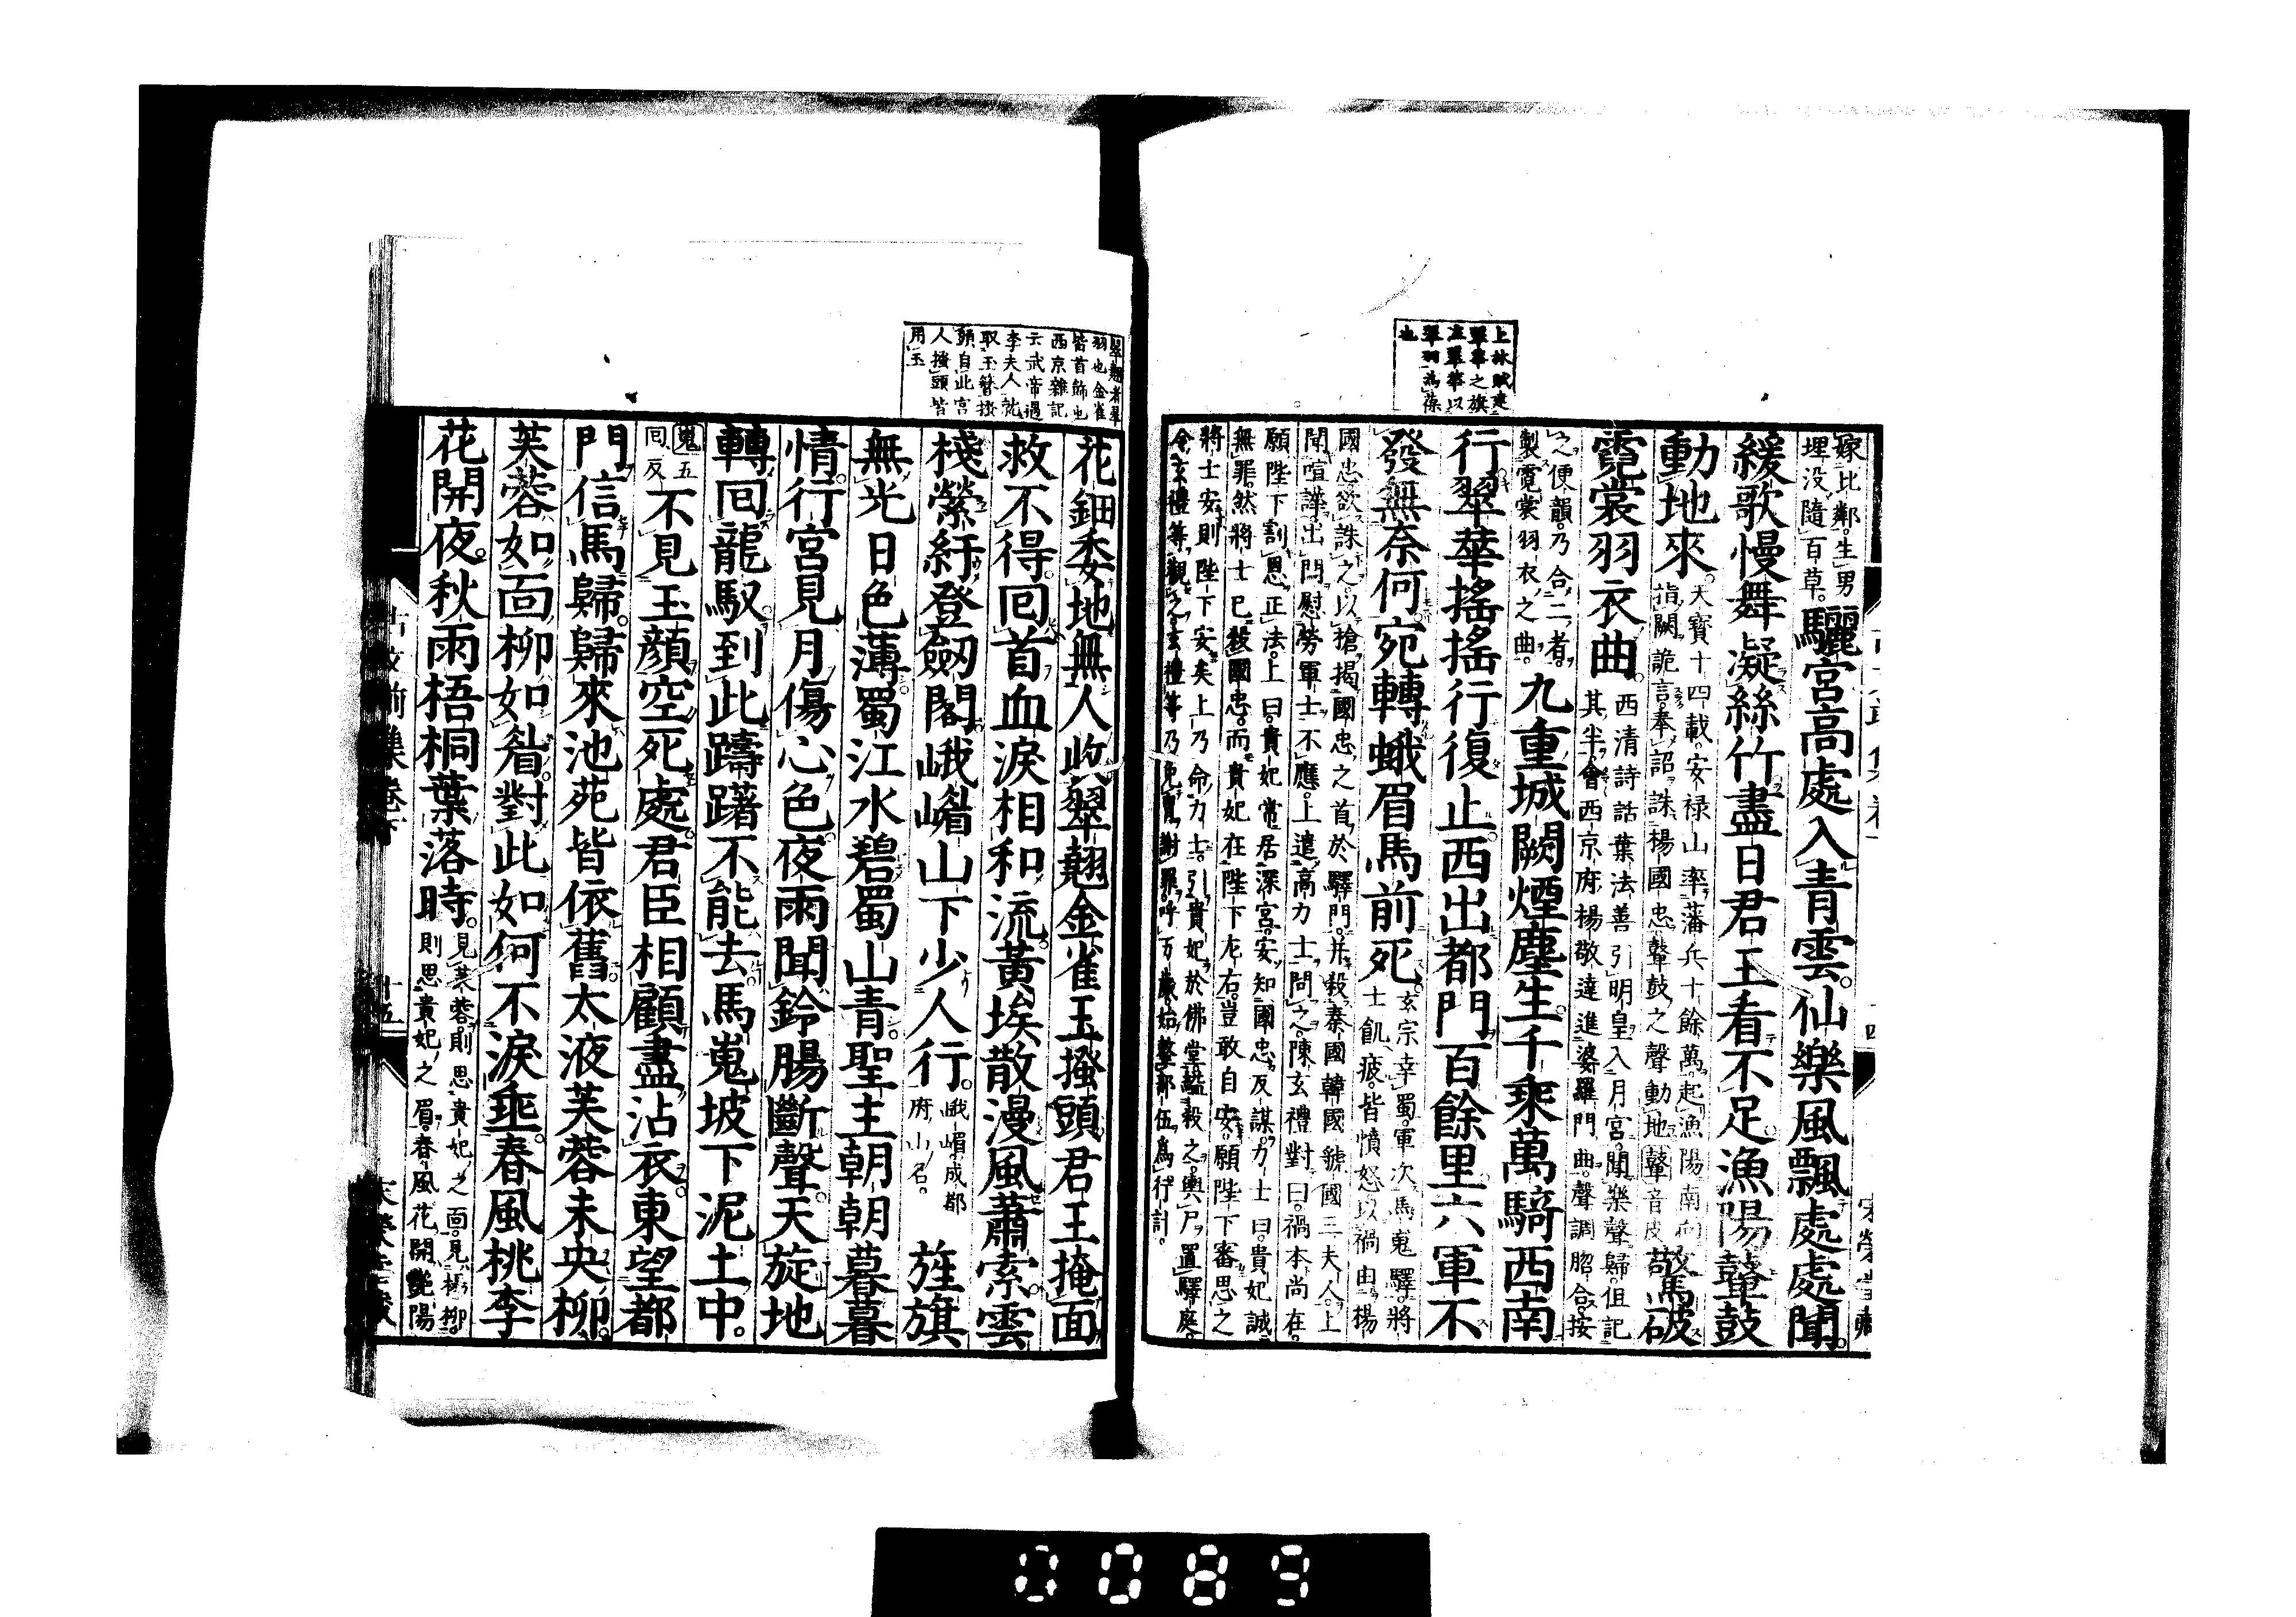 上林賦建
翠華之旗
注翠華以
翠羽為葆
也
嫁比鄰生男
埋没隨百草驪宮高處入青雲仙樂風飄處處聞
緩歌慢舞凝絲竹盡日君王看不足漁陽鼙鼓
動地來天寶十四載安禄山率藩兵十餘萬起漁陽南向
指闕詭言奉詔誅楊國忠鼙鼓之聲動地鼙音皮驚破
霓裳羽衣曲西清詩話葉法善引明皇入月宮聞樂聲歸但記
其半會西京府楊敬達進婆羅門曲聲調脗合按
之便韻乃合二者
製霓裳羽衣之曲九重城闕煙塵生千乘萬騎西南
行翠華搖搖行復止西出都門百餘里六軍不
發無奈何宛轉蛾眉馬前死玄宗幸蜀軍次馬嵬驛將
士飢疲皆憤怒以禍由楊
國忠欲誅之以槍揭國忠之首於驛門并殺秦國韓國虢國三夫人上
聞喧譁出門慰勞軍士不應上遣高力士問之陳玄禮對曰禍本尚在
願陛下割恩正法上曰貴妃常居深宮安知國忠反謀力士曰貴妃誠
無罪然將士已殺國忠而貴妃在陛下左右豈敢自安願陛下審思之
將士安則陛下安矣上乃命力士引貴妃於佛堂縊殺之輿尸置驛庭
令玄禮等觀之玄禮等乃免冑謝罪呼万歲始整部伍為行計
十四
翠翹者翠
羽也金雀
皆首飾也
西京雜記
云武帝過
李夫人就
取玉簪搔
頭自此宮
人搔頭皆
用玉
花鈿委地無人收翠翹金雀玉搔頭君王掩面
救不得囘首血淚相和流黃埃散漫風蕭索雲
棧縈紆登劔閣峨嵋山下少人行峨嵋成都
府山名旌旗
無光日色薄蜀江水碧蜀山青聖主朝朝暮暮
情行宮見月傷心色夜雨聞鈴腸斷聲天旋地
轉囘龍馭到此躊躇不能去馬嵬坡下泥土中
嵬五
囘反不見玉顔空死處君臣相顧盡沾衣東望都
門信馬歸歸來池苑皆依舊太液芙蓉未央柳
芙蓉如面柳如眉對此如何不淚垂春風桃李
花開夜秋雨梧桐葉落時見芙蓉則思貴妃之面見楊柳
則思貴妃之眉春風花開艶陽
前集卷下
十五
0089